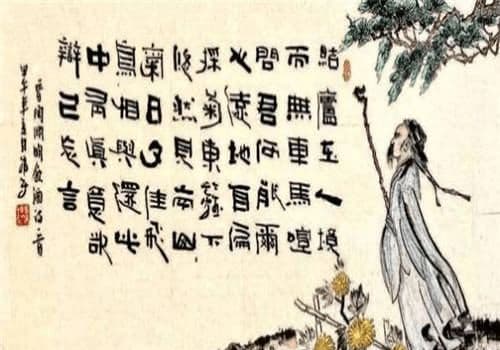 結廬在人境
而無車馬喧
問君何能爾
心遠地自偏
採菊東籬下
悠然見南山
氣日夕佳飛
鳥相與還此
中有真意欲
辯已忘言
晉陶淵明飲酒詩一首
甲午年